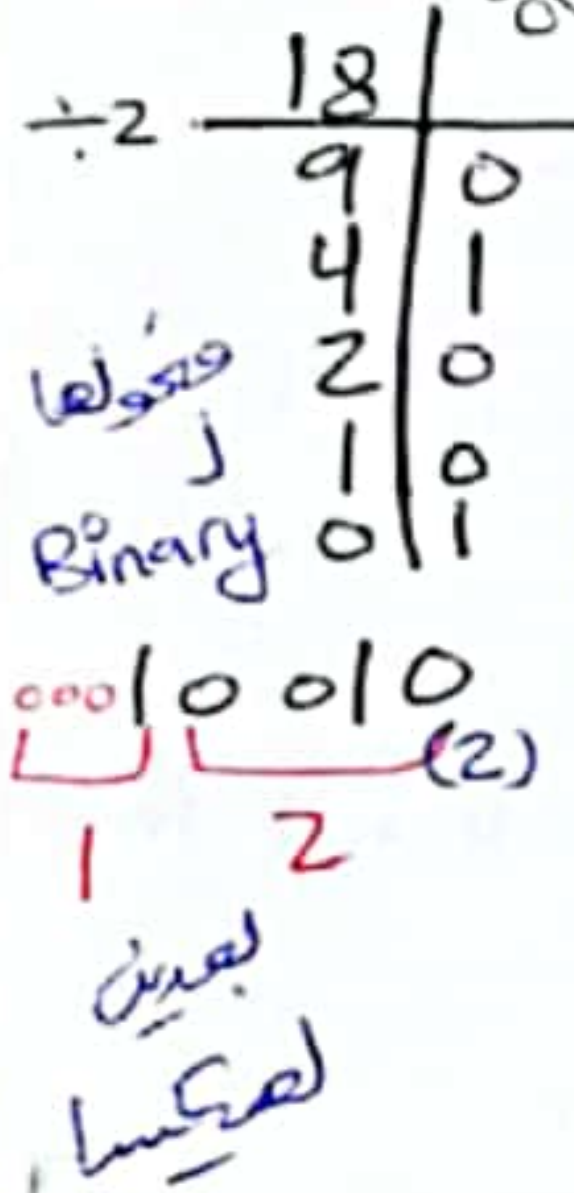 18
÷2
9 0
4 1
2 0
1 0
0 1
ونحولها
ل
Binary
00010010
(2)
1 2
بعدين
لهيكسا